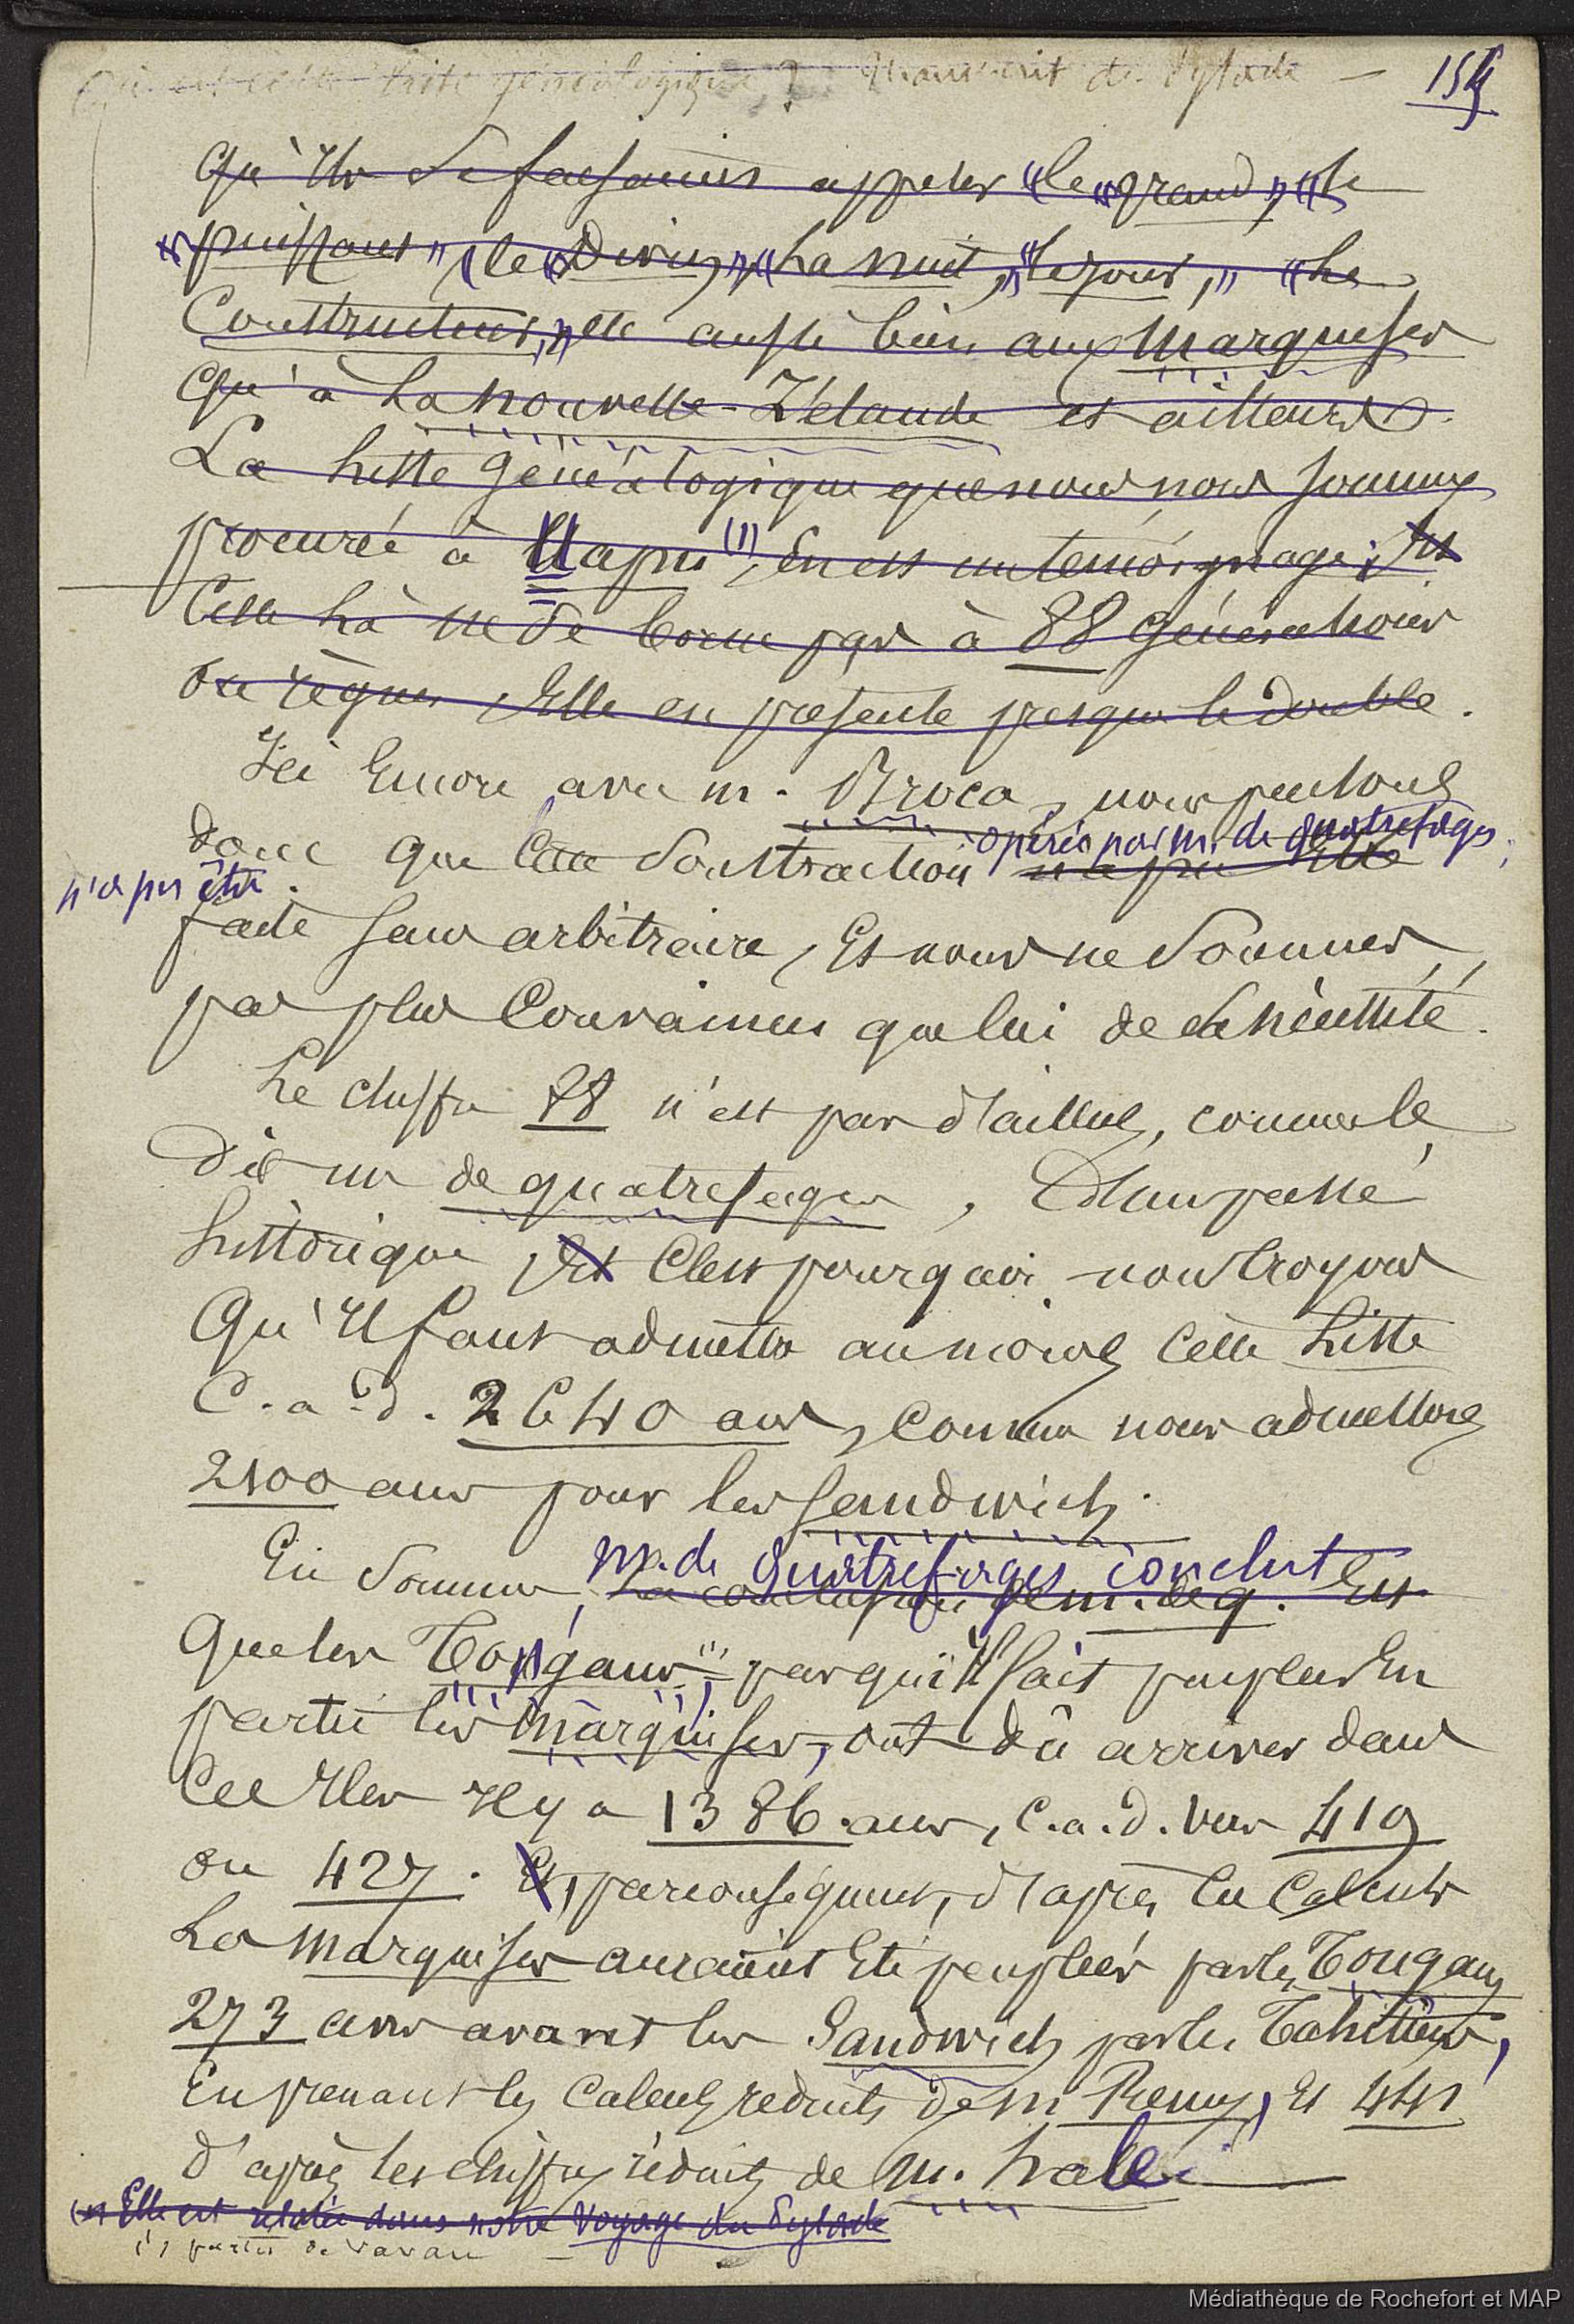 Qui est cette liste généalogique ? Manuscrit du Pylade — 154
qu'ils se faisaient appeler "le "grand", "le
"puissant" "le "Divin", "La nuit", "le jour," "Le
Constructeur," etc aussi bien aux Marquises
qu'à La Nouvelle-Zélande et ailleurs.
La liste généalogique que nous nous sommes
procurée à Uapu (1), en est un témoignage; Et
Celle là ne se borne pas à 88 Générations
ou règnes, Elle en présente presque le double.
Ici Encore avec m. Broca, nous pensons
opérée par M. de Quatrefages,
donc que cette soustraction n'a pu être
n'a pu être
faite sans arbitraire, Et nous ne sommes,
pas plus Convaincu que lui de sa nécessité.
Le chiffre 88 n'est pas d'ailleurs, comme le
dit m de quatrefages, d'un passé
historique Et C'est pourquoi nous croyons
Qu'Il faut admettre au moins cette Liste
C. a. d. 2640 ans, comme nous admettons
2100 ans pour les Sandwich.
M. de Quatrefages conclut
En somme, La conclusion de m. de q. Est
que les Tongans (1) par qui Il fait peupler En
partie les Marquises, ont dû arriver dans
Ces Iles Il y a 1386 ans, c.a.d. vers 419
ou 427. Et, par conséquent, d'après ces Calculs
Les Marquises auraient Eté peuplées par les Tongans
273 ans avant les Sandwich par les Tahitiens,
En prenant les Calculs réduits de m Remy, Et 441
d'après les chiffres réduits de M. hale.
(1) Elle est relatée dans notre Voyage du Pylade
(1) partis de Vavau —
Médiathèque de Rochefort et MAP